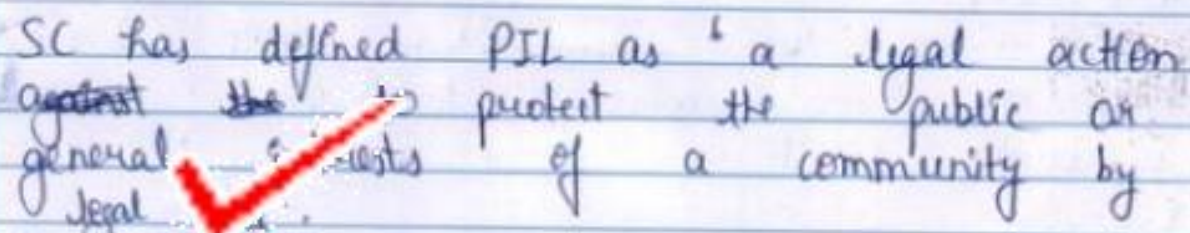 SC has defined PIL as ' a legal action
against the to protect the public or
general interests of a community by
legal